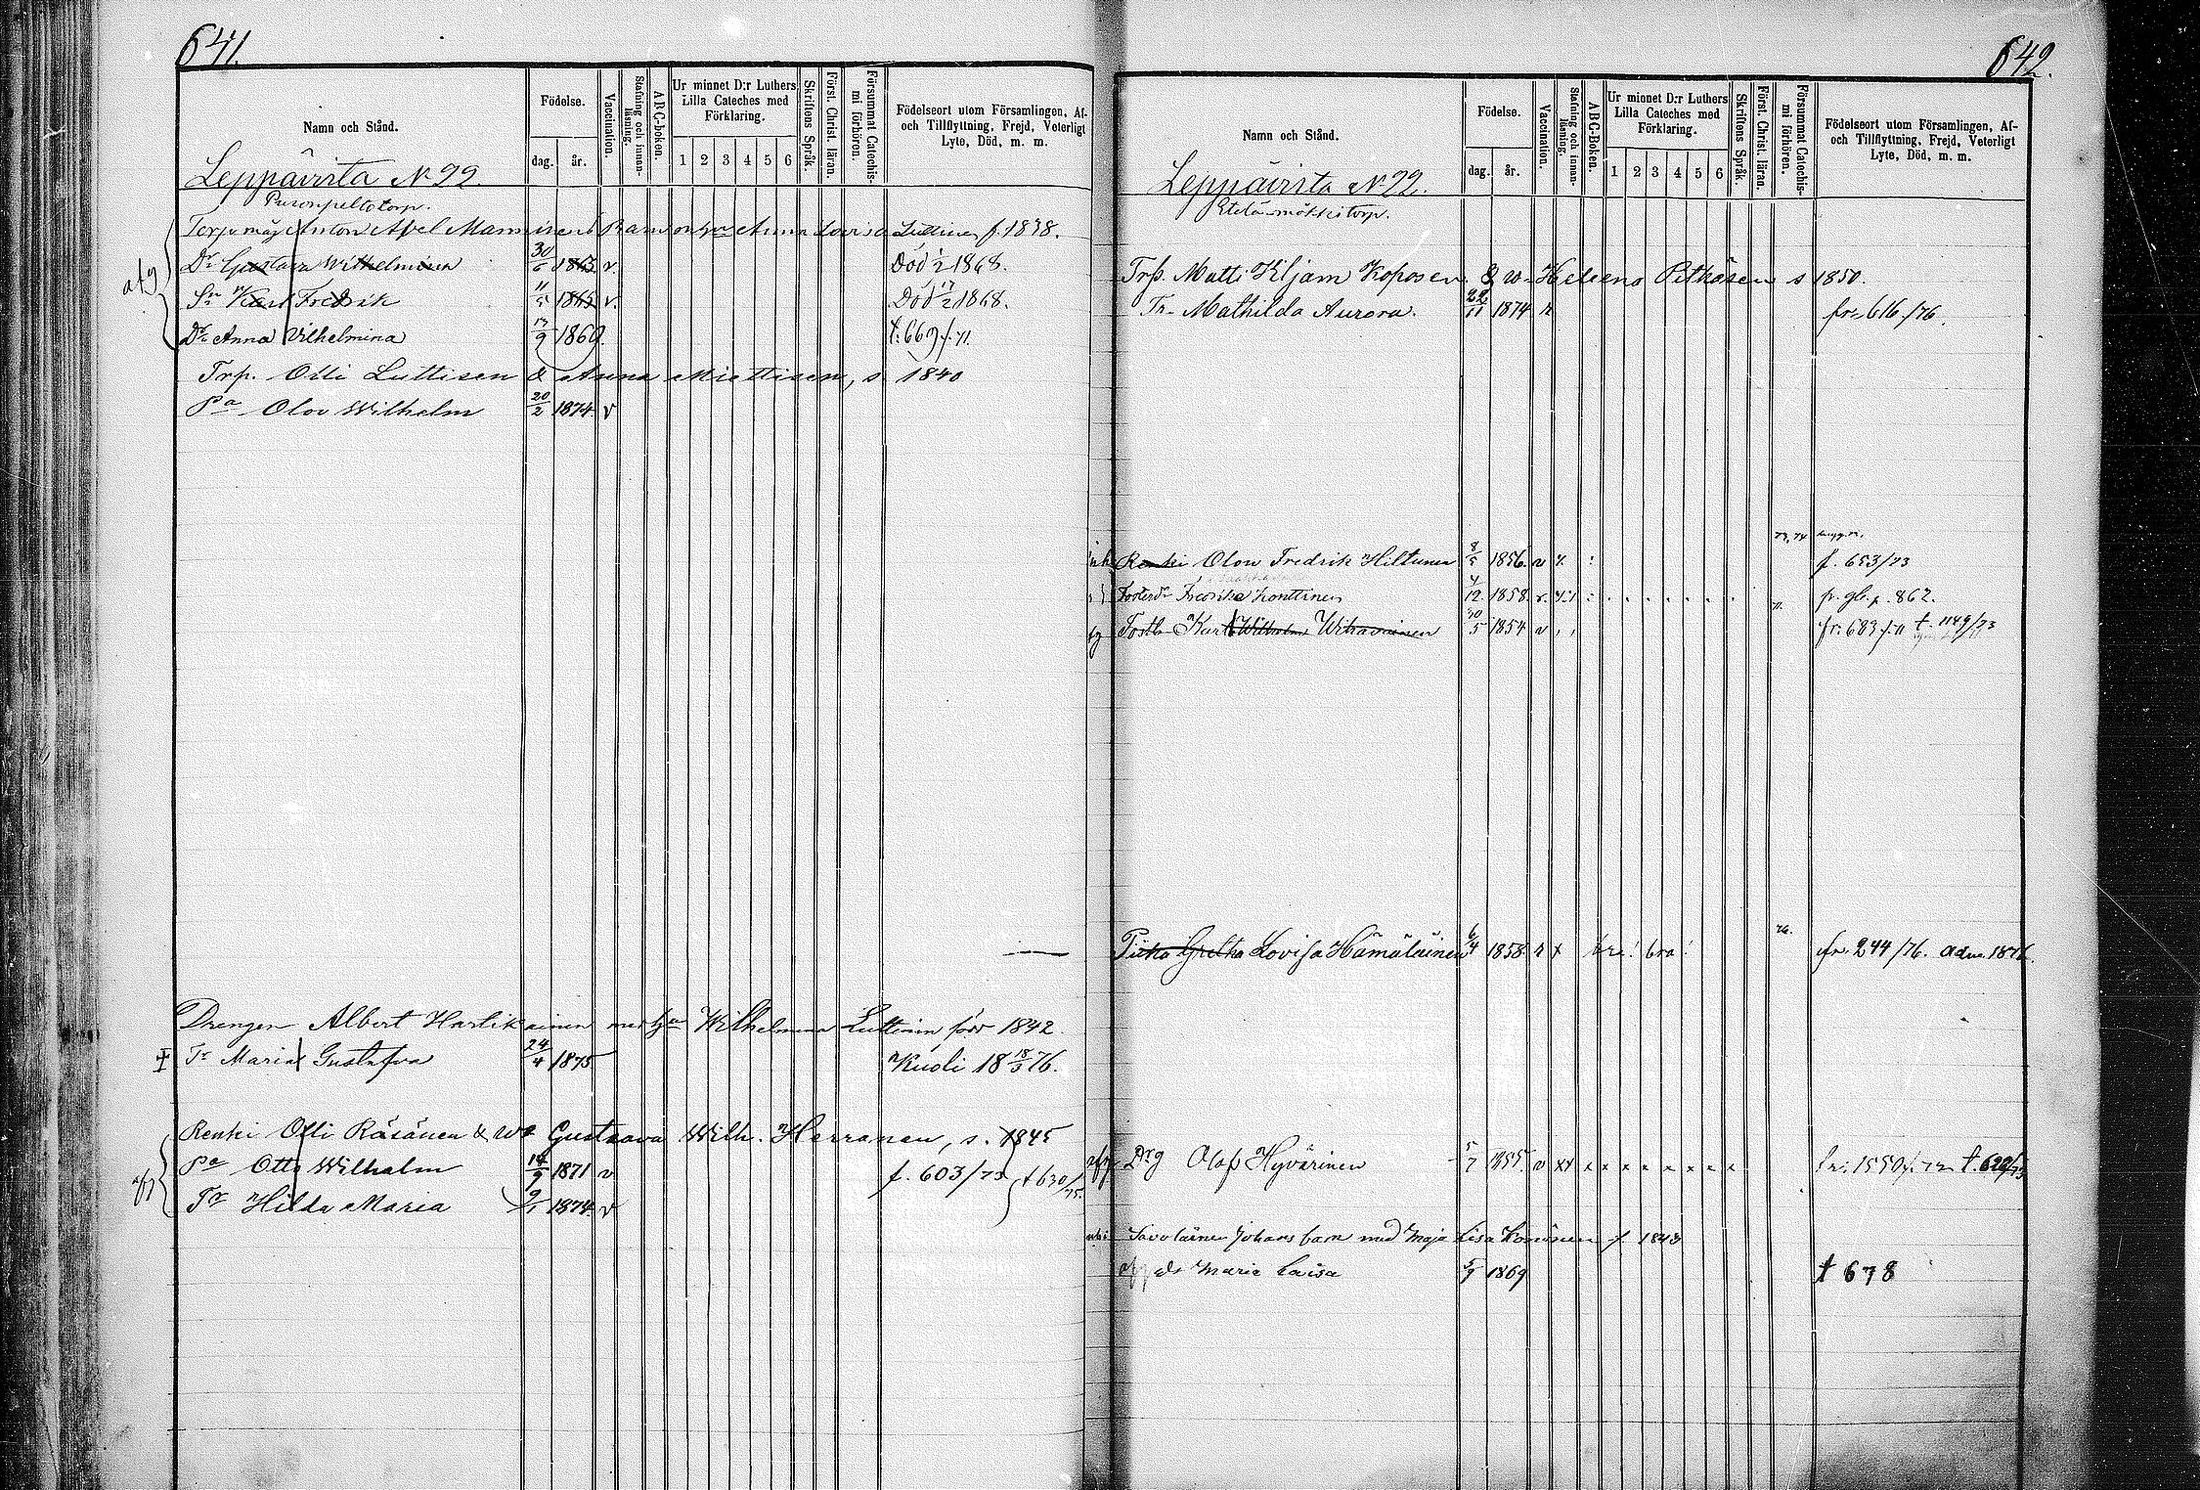 641.
Namn och Stånd.
Födelse.
dag. år.
Vaccination.
Stafning och innan-läsning.
ABC-boken.
Ur minnet D:r Luthers Lilla Cateches med Förklaring.
1 2 3 4 5 6
Skriftens Språk.
Först. Christ. läran.
Försummat Catechis-mi förhören.
Födelseort utom Församlingen, Af- och Tillflyttning, Frejd, Veterligt Lyte, Död, m. m.
Leppävirta N 22.
Torp. måg Anton Axel Manninens Barn Anna Lovisa Luttinen f. 1838.
afg
Dr Gustava Wilhelmina 30/6 1863 v. Död 1/2 1868.
Sn Karl Fredrik 11/5 1865 v. Död 17/2 1868.
Dr Anna Vilhelmina 17/9 1869. t. 669/71.
Trp. Olli Luttisen & Anna Miettisen, s. 1840
Pa Olov Wilhelm 20/2 1874. v
Drengen Albert Hartikainen med Wilhelmina Luttinen född 1842
Tr Maria Gustafva 24/4 1875 Kuoli 18 18/3 76.
Renki Olli Räsänen & Wo Gustaava Wilh. Herranen, s. 1845
Pa Otto Wilhelm 14/9 1871 v f. 603/73 t 630/75.
Tr Hilda Maria 9/1 1874. v
642.
Namn och Stånd.
Födelse.
dag. år.
Vaccination.
Stafning och innan-läsning.
ABC-Boken.
Ur minnet D:r Luthers Lilla Cateches med Förklaring.
1 2 3 4 5 6
Skriftens Språk.
Först. Christ. läran.
Försummat Catechis-mi förhören.
Födelseort utom Församlingen, Af- och Tillflyttning, Frejd, Veterligt Lyte, Död, m. m.
Leppävirta N 22.
Etelä-mökki torp.
Trp. Matti Kiljam Koposen & w. Helena Pitkäsen s 1850.
Tr Mathilda Aurora. 22/11 1874 r fr. 616/76.
73, 74
Renki Olow Fredrik Hiltunen 8/5 1856. v f. 653/73
Fosterdr Fredrika Konttinen 4/12 1858. v. fr. gb. p. 862.
Karl Wilhelm 30/5 1854 v fr. 683 t. 1149/73
Piika Gretha Lovisa Hämäläinen 6/4 1858 r x bra! bra! 76. fr. 244/76. adm. 1876.
afg Drg Olof Hyvärinen 5/7 1855. v xx x x x x x x x x fr. 1550/72 t. 620/73
Savolainen Johans barn med Maja Lisa Kononen f. 1843
dr Maria Laisa 5/9 1869 t 678